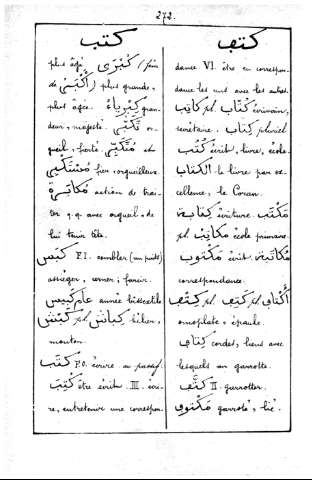 272.
كتب
plus âgé. كُبْرَى (fém.
de أَكْبَر) plus grande,
plus âgée. كِبْرِيَاء gran-
deur, majesté. تَكَبُّر or-
gueil, fierté. مُتَكَبِّر et
fier, orgueilleux.
مُكَابَرَة action de trai-
ter q.q. avec orgueil, de
lui tenir tête.
كَبَسَ F.I. combler (un puits)
assiéger, cerner; farcir.
عَام كَبِيس année bissextile
كَبْش pl. كِبَاش bélier,
mouton.
كَتَبَ F.O. écrire au passif.
كُتِبَ être écrit. III. écri-
re, entretenir une correspon-
كتف
dance VI. être en correspon-
dance les uns avec les autres.
كَاتِب pl. كُتَّاب écrivain,
secrétaire. كِتَاب pluriel
كُتُب écrit, livre, école.
الكِتَاب le livre par ex-
cellence, le Coran.
كِتَابَة écriture. مَكْتَب
pl. مَكَاتِب école primaire.
مَكْتُوب écrit. مُكَاتَبَة
correspondance.
كَتِف pl. أَكْتَاف
omoplate, épaule.
كِتَاف cordes, liens avec
lesquels on garrotte.
كَتَّفَ II garrotter.
مَكْتُوف garrotté, lié.